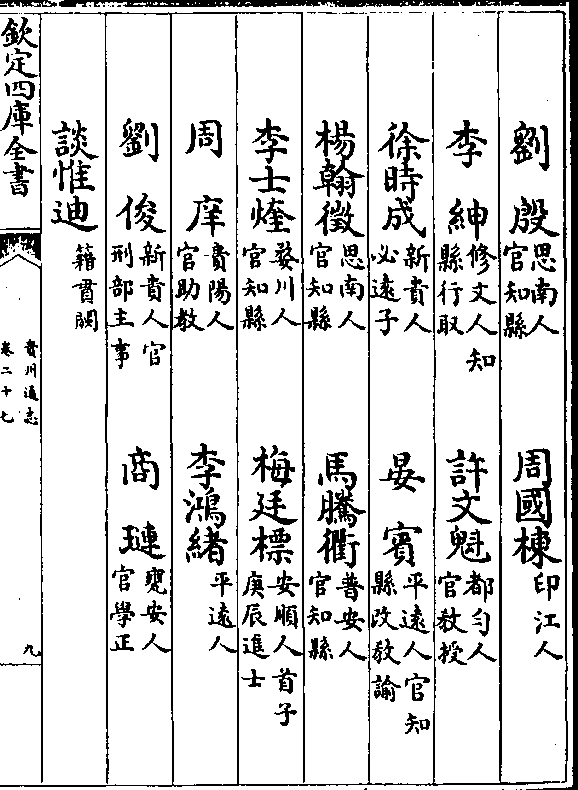 劉殷思南人官知縣 周國棟印江人
李紳修文人知縣行取 許文魁都勻人官教授
徐時成新貴人必遠子 晏賓平遠人官知縣改教諭
楊翰徵思南人官知縣 馬騰衢普安人官知縣
李士煃婺川人官知縣 梅廷標安順人首子庚辰進士
周庠貴陽人官助教 李鴻緒平遠人
劉俊新貴人官刑部主事 商璉甕安人官學正
談惟迪籍貫闕
欽定四庫全書
貴州通志
卷二十七
九